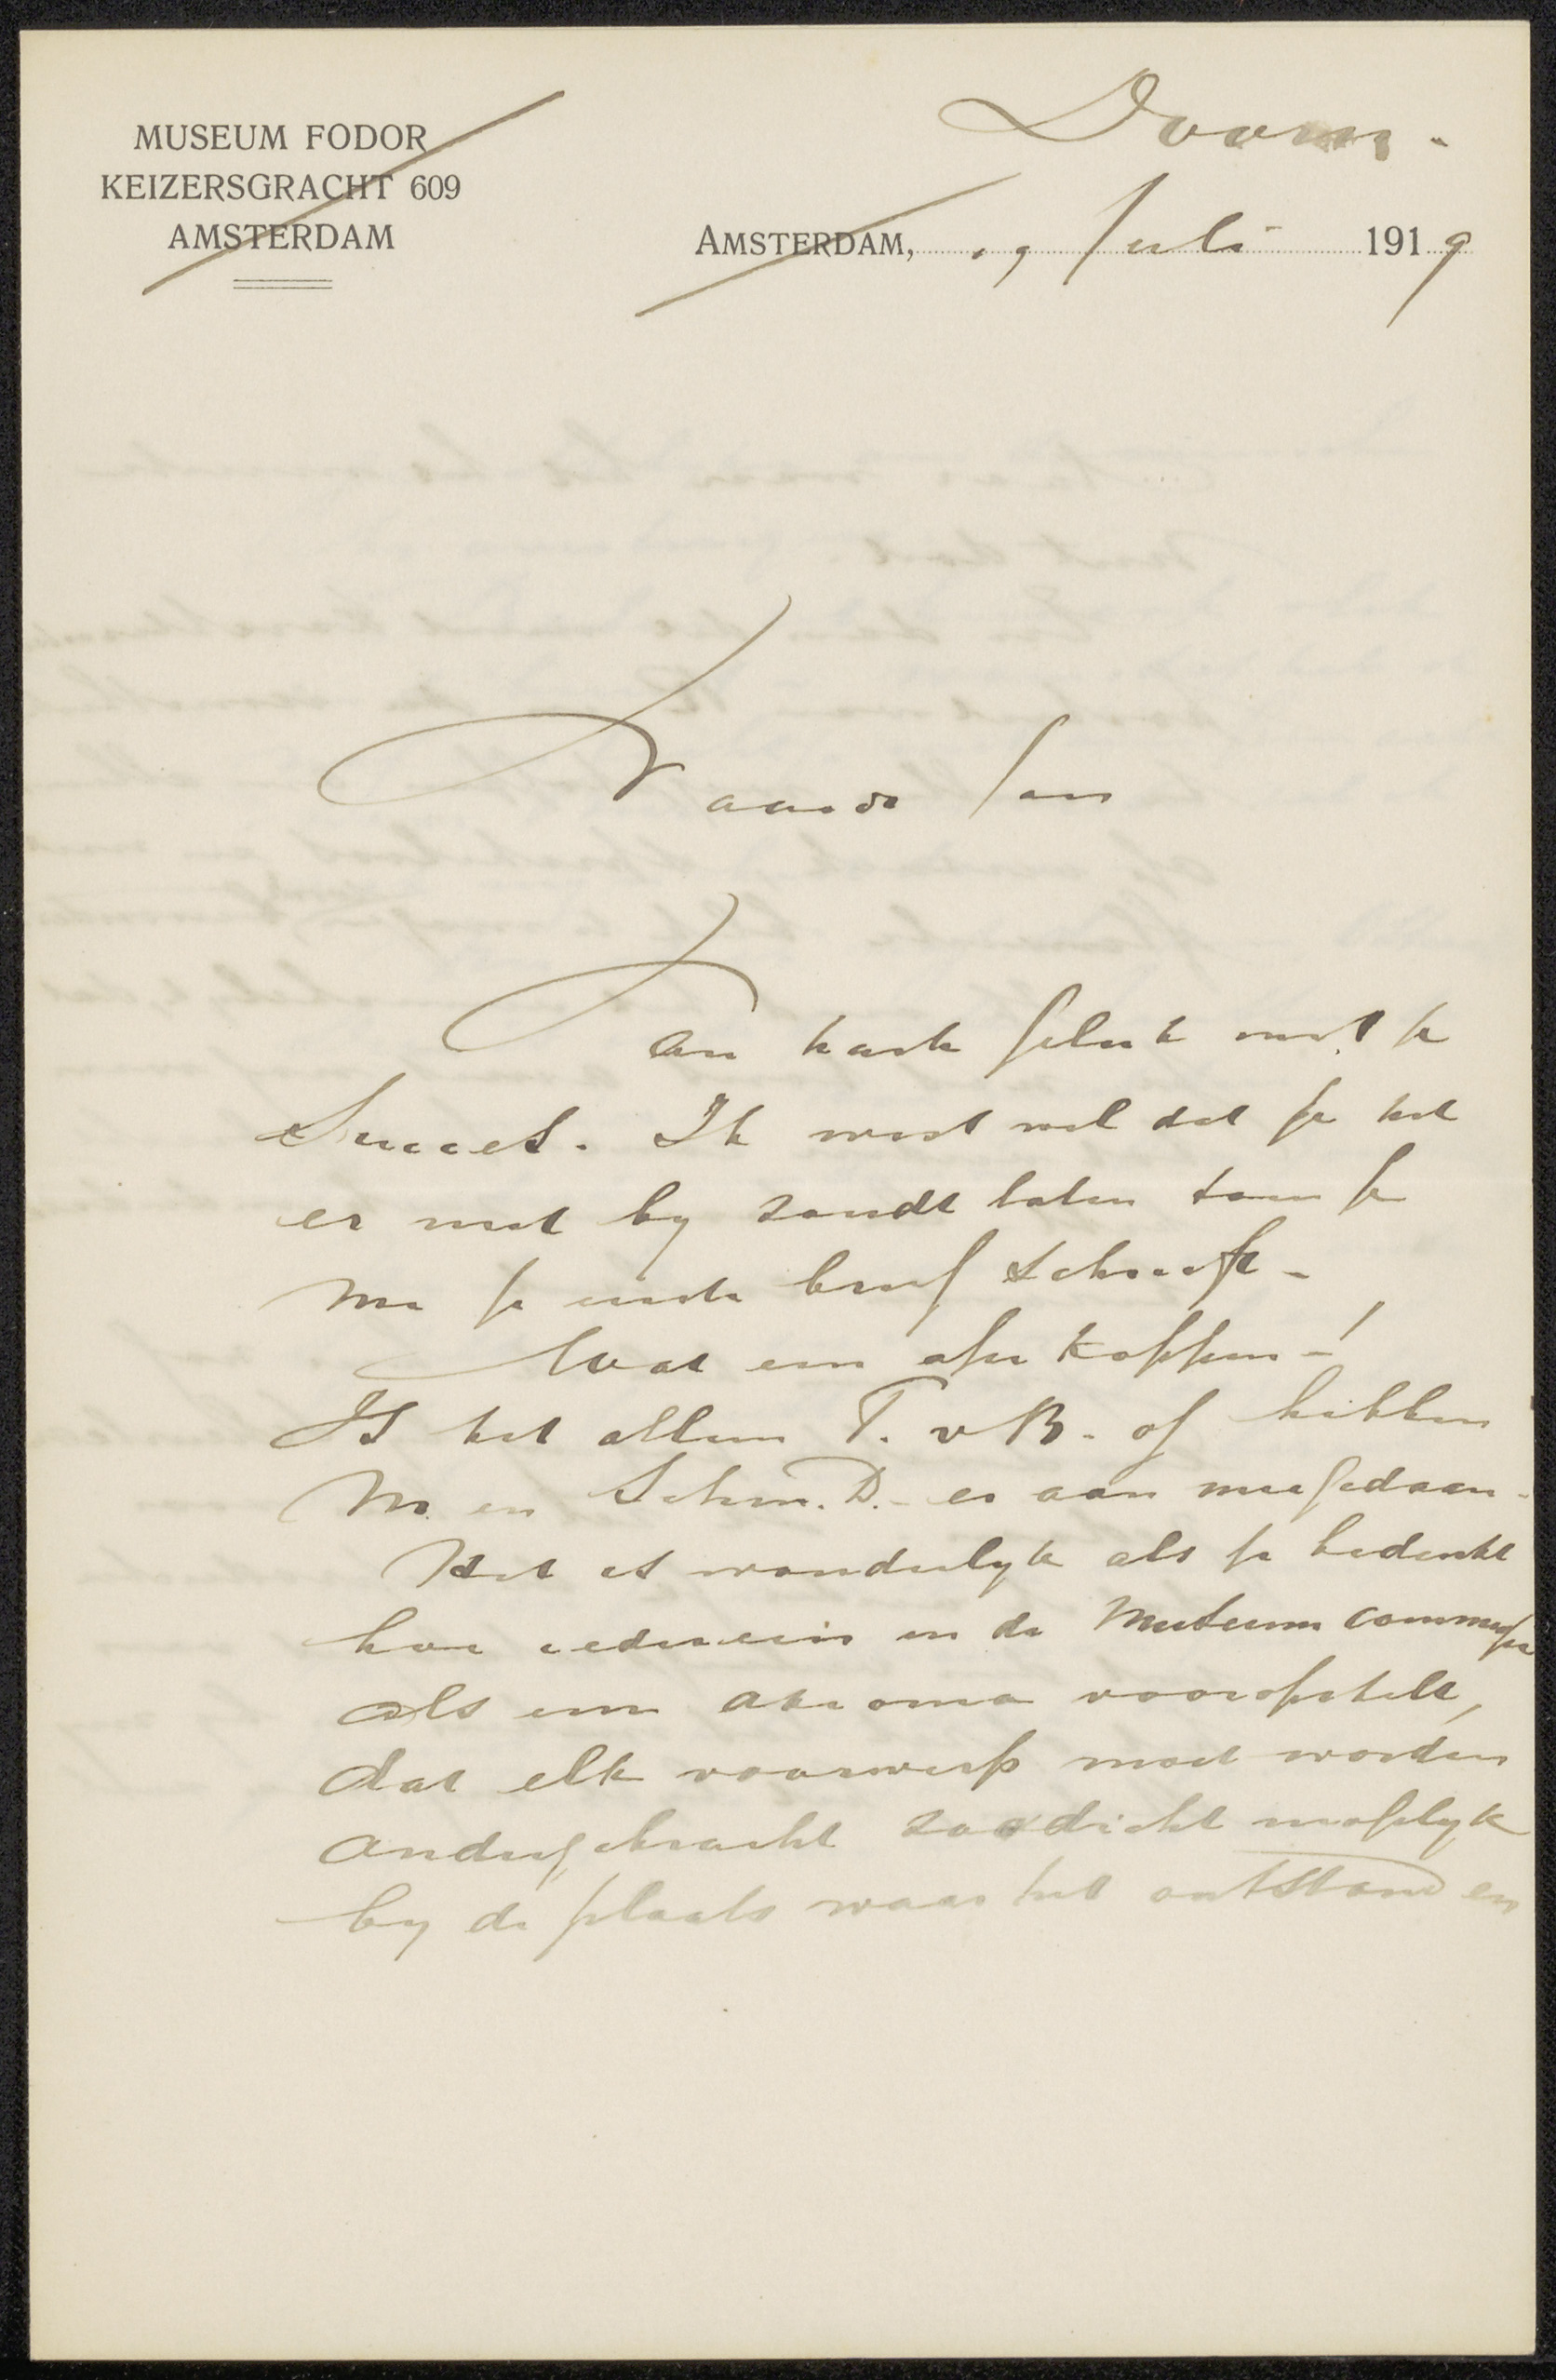 MUSEUM FODOR
KEIZERSGRACHT 609
AMSTERDAM
Doorn.
AMSTERDAM, 19 Juli 1919
Waarde Jan
Van harte geluk met je
Succes. Ik wist wel dat je het
er niet by zoudt laten toen je
me je eerste brief schreeft -
Wat een afer koppen - !
Is het alleen T. v B. of hebben
M. en Schm. D. - er aan meegedaan.
Het is wonderlyk als je bedenkt
hoe iedereen in de Museum commissie
als een axioma vooropstelt,
dat elk voorwerp moet worden
ondergebracht zoo dicht mogelyk
by de plaats waar het ontstond en